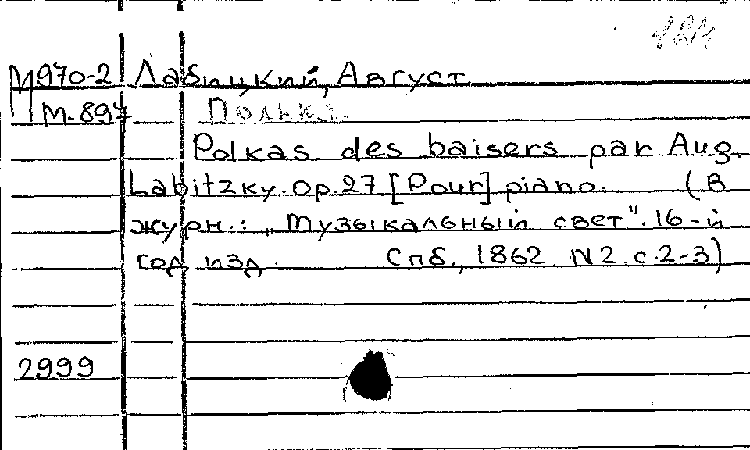 М970-2 Лабицкий, Август
М.897 Полька.
Polkas des baisers par Aug.
Labitzky. Op.27 [Pour] piano. (В
журн.: „Музыкальный свет". 16-й
год изд. Спб., 1862 N2. с.2-3)
2999